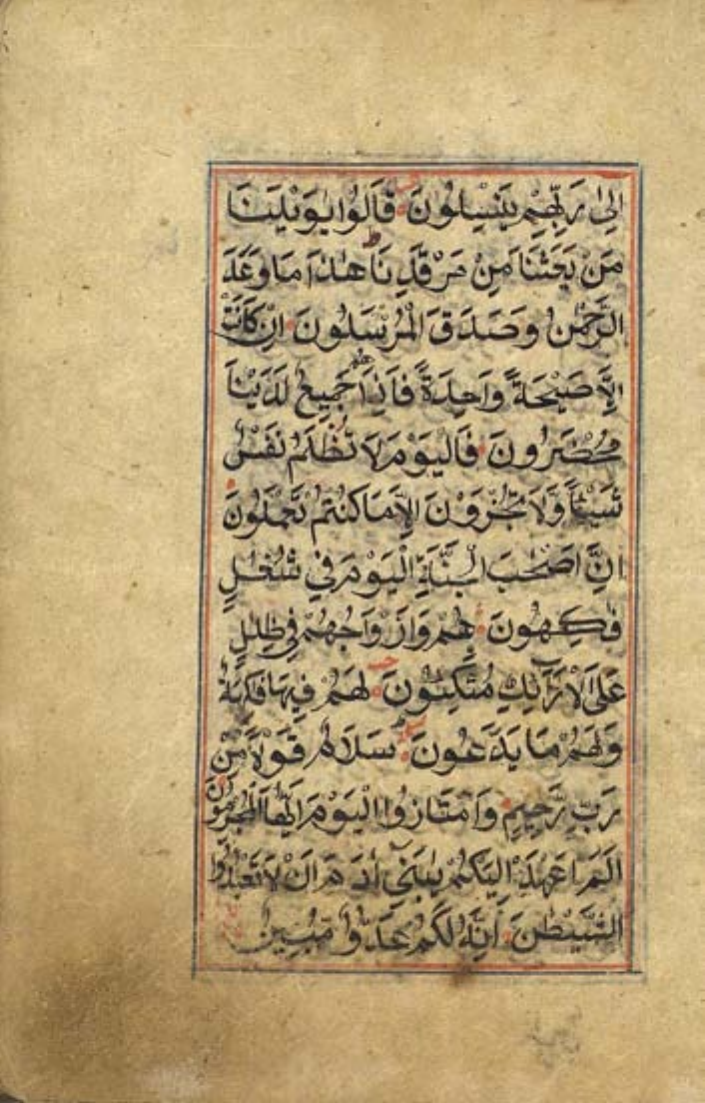 اِلىٰ رَبِّهِمْ يَنْسِلُونَ قَالُوا يٰوَيْلَنَا
مَنْ بَعَثَنَا مِنْ مَرْقَدِنَا هٰذَا مَا وَعَدَ
الرَّحْمٰنُ وَصَدَقَ الْمُرْسَلُونَ اِنْ كَانَتْ
اِلَّا صَيْحَةً وَاحِدَةً فَاِذَا جَمِيعٌ لَدَيْنَا
مُحْضَرُونَ فَالْيَوْمَ لَا تُظْلَمُ نَفْسٌ
شَيْئًا وَلَا تُجْزَوْنَ اِلَّا مَا كُنْتُمْ تَعْمَلُونَ
اِنَّ اَصْحٰبَ الْجَنَّةِ الْيَوْمَ فِي شُغُلٍ
فٰكِهُونَ هُمْ وَاَزْوَاجُهُمْ فِي ظِلٰلٍ
عَلَى الْاَرَآئِكِ مُتَّكِئُونَ لَهُمْ فِيهَا فَاكِهَةٌ
وَلَهُمْ مَا يَدَّعُونَ سَلَامٌ قَوْلًا مِنْ
رَبٍّ رَحِيمٍ وَامْتَازُوا الْيَوْمَ اَيُّهَا الْمُجْرِمُونَ
اَلَمْ اَعْهَدْ اِلَيْكُمْ يٰبَنِي اٰدَمَ اَنْ لَا تَعْبُدُوا
الشَّيْطٰنَ اِنَّهُ لَكُمْ عَدُوٌّ مُبِينٌ